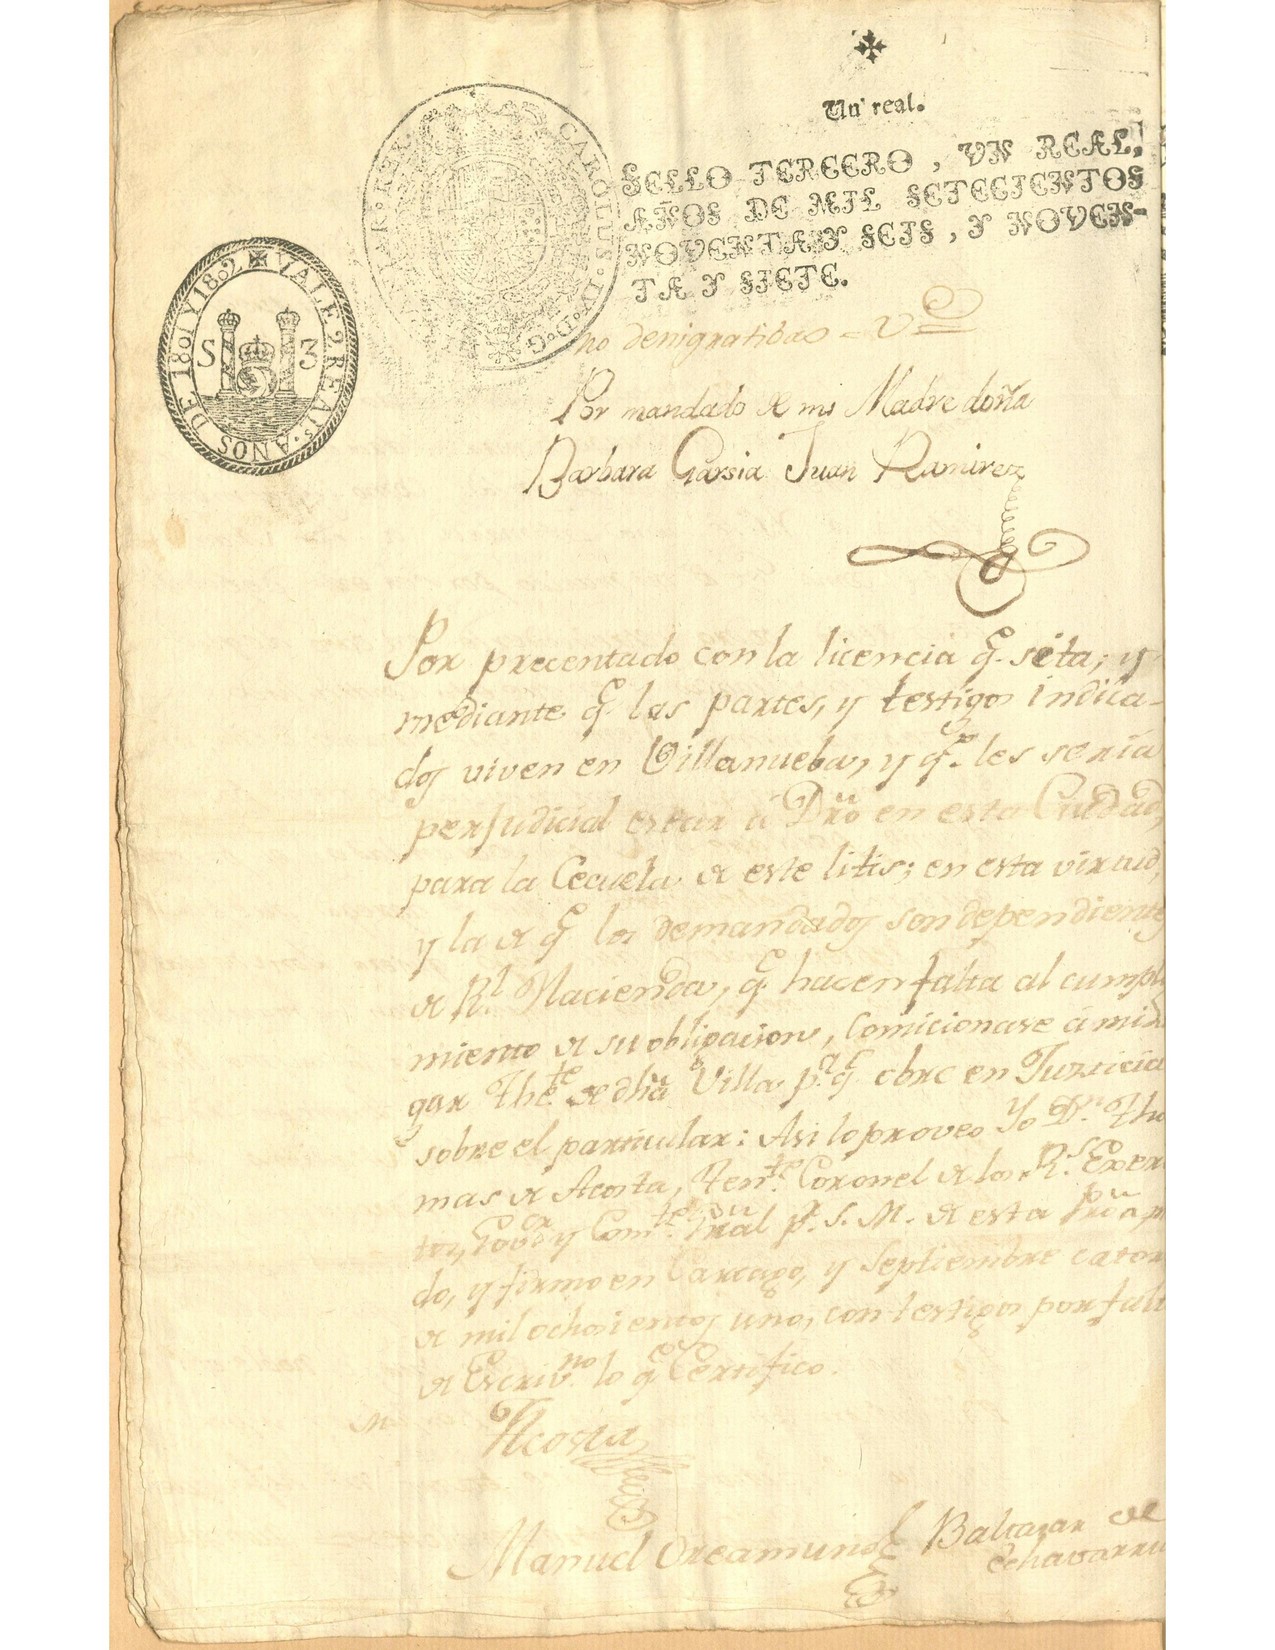 Un real.
SELLO TERCERO, VN REAL,
AÑOS DE MIL SETECIENTOS
NOVENTA Y SEIS, Y NOVEN-
TA Y SIETE.
CAROLUS · IV · D · G · HISPANIAR · REX
VALE 2 REALs. AÑOS DE 1801 Y 1802
S 3
no denigratibas =
Por mandado de mi Madre doña
Barbara Garsia Juan Ramirez
Por precentado con la licencia q.e seita; y
mediante q.e las partes, y testigos indica-
dos viven en Villanueba, y q.e les sería
perjudicial estar á Dro en esta Ciudad,
para la Cecuela de este litis; en esta virtud,
y la de q.e los demandados son dependiente
de R.l Hacienda, q.e hacen falta al cumpli
miento de su obligacion, Comicionase á mi
gar The.te de dha Villa p.a q.e obre en Justicia
sobre el particular: Asi lo proveo Yo D.n Tho
mas de Acosta, Ten.te Coronel de los R.s Exerc
tos, Gov.or y Com.te Gral p.r S. M. de esta Prov.a
do, y firmo en Cartago, y Septiembre cator
de mil ochosientos uno, con testigos por falt
de Escriv.no lo q.e Certifico.
Acosta
Manuel Oreamuno
Baltazar de
Echavarria